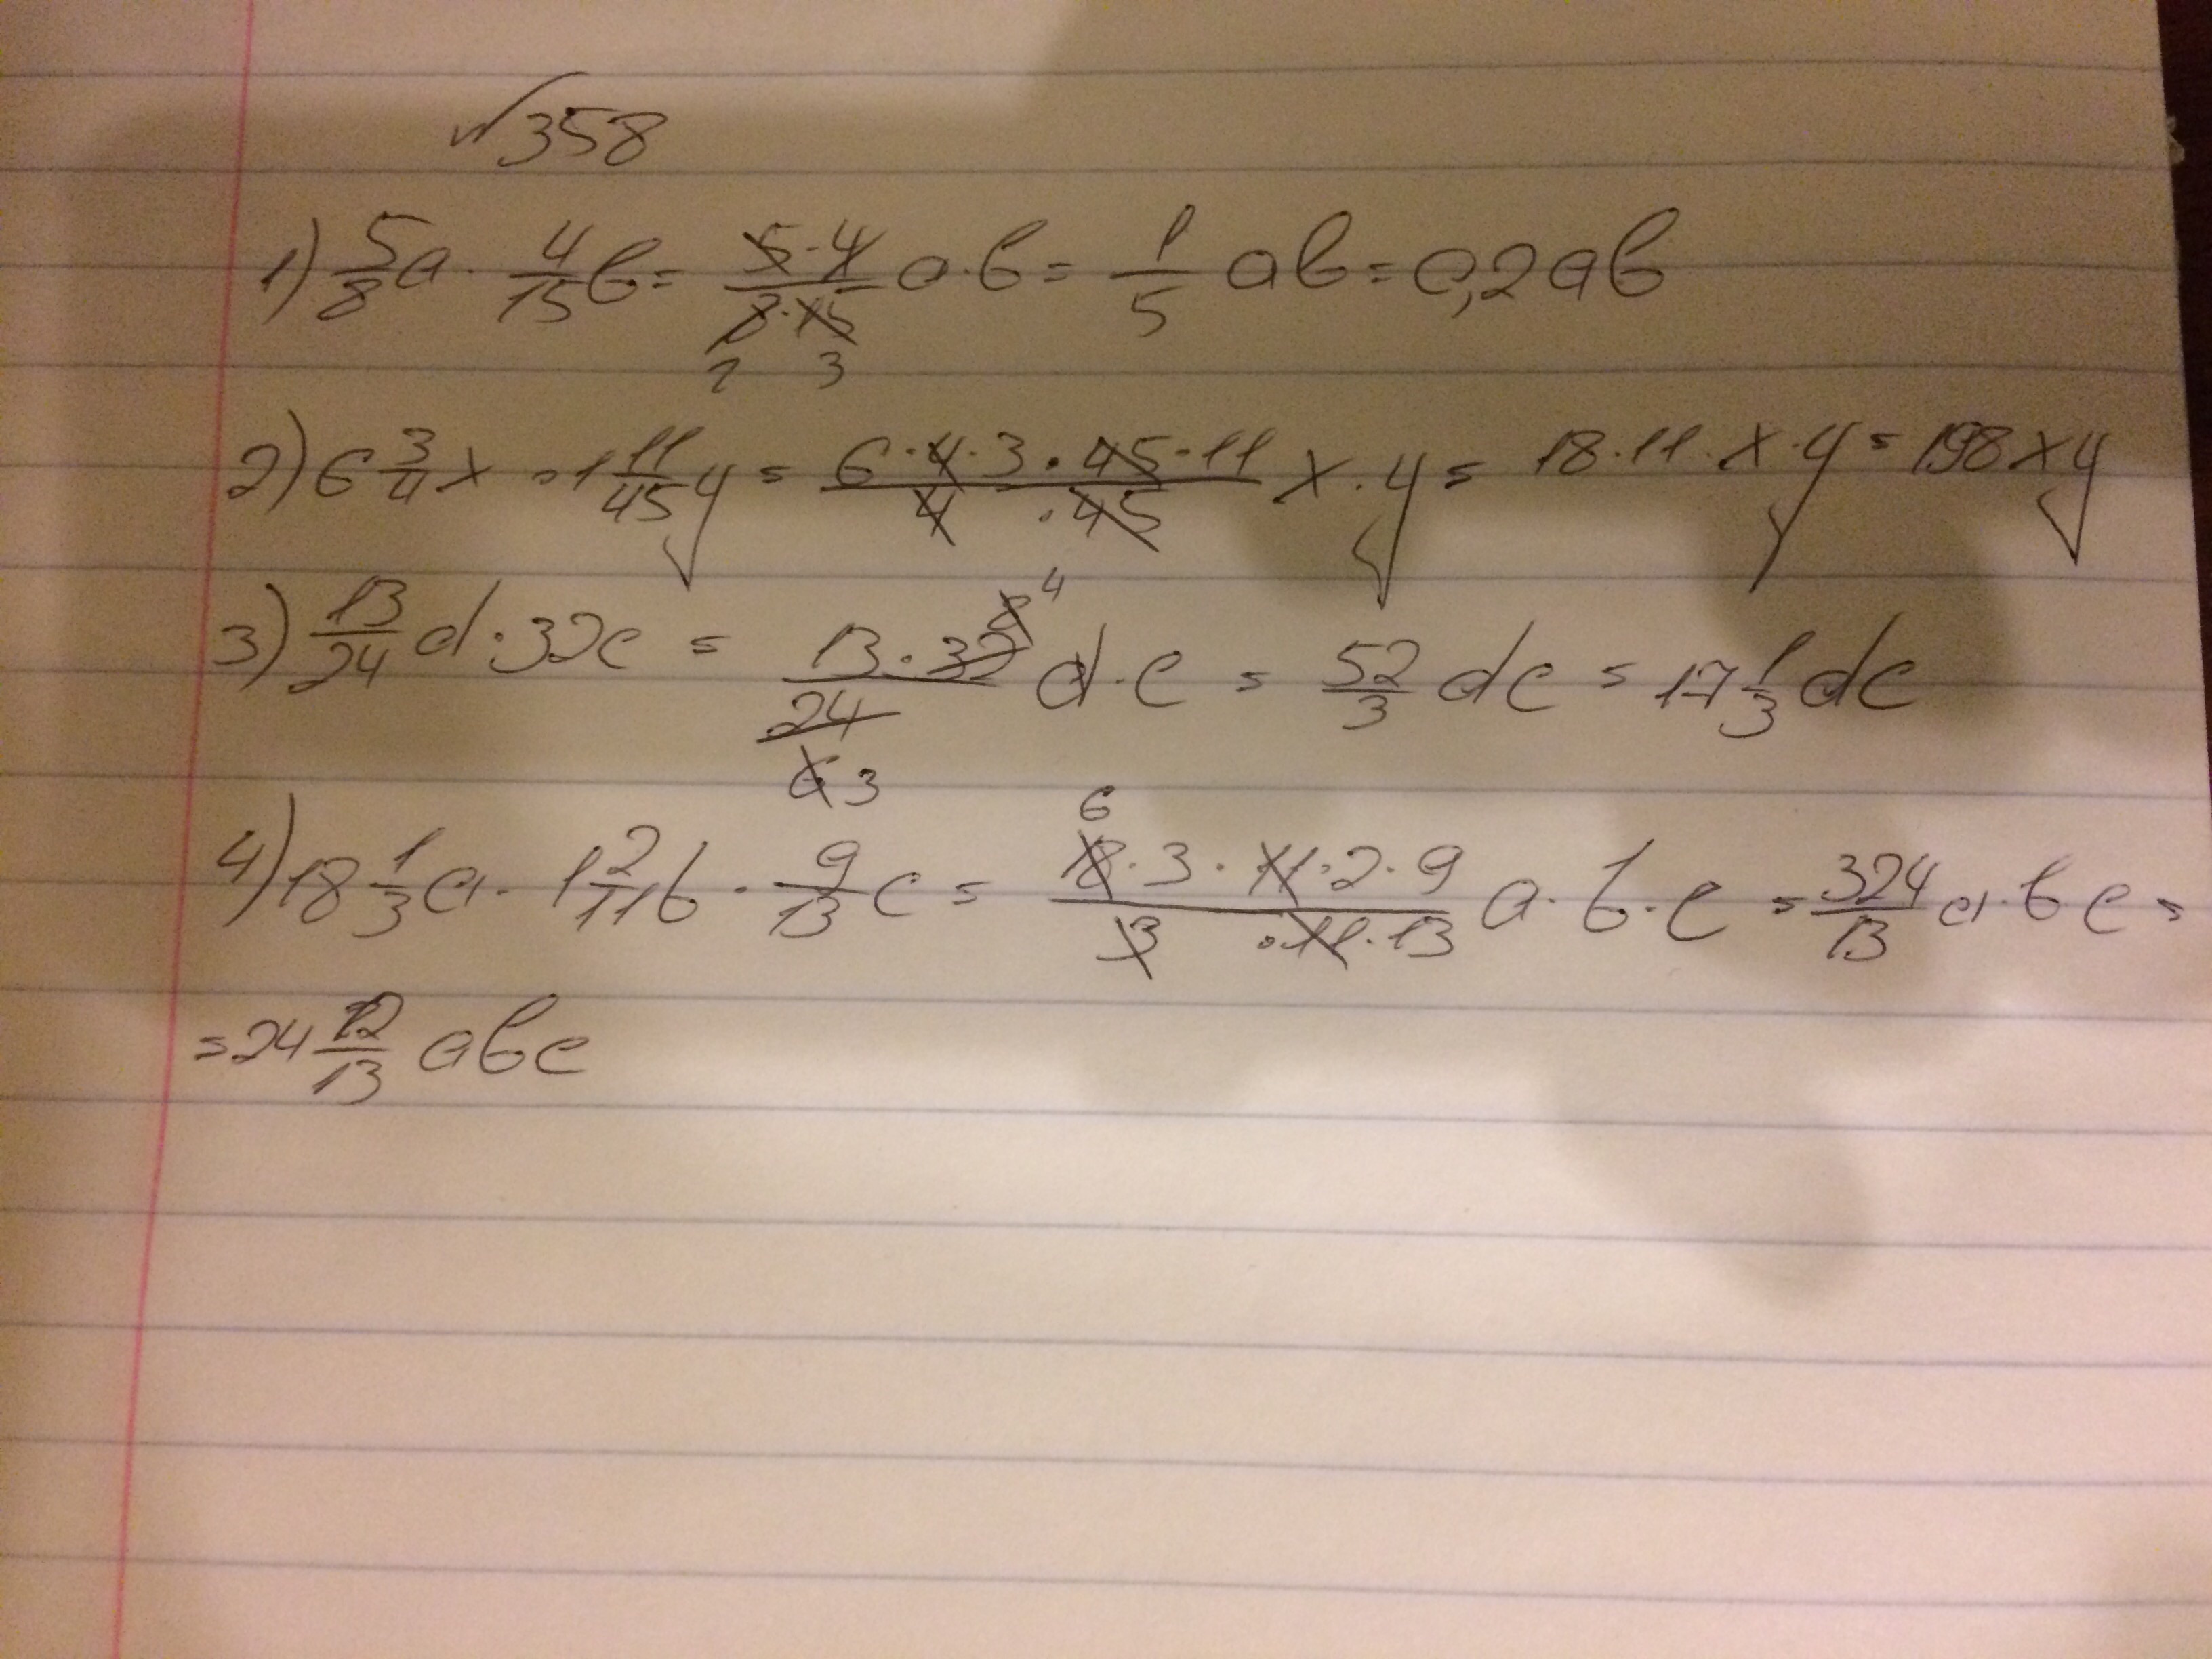 √358
1) 5/8 a · 4/15 b = 5·4/8·15 a·b = 1/5 ab = 0,2ab
2 3
2) 6 3/4 x · 1 11/45 y = 6·4·3·45·11/4·45 x·y = 18·11·x·y = 198xy
8 4
3) 13/24 d · 32c = 13·32/24 d·c = 52/3 dc = 17 1/3 dc
6 3
6
4) 18 1/3 a · 1 2/11 b · 9/13 c = 18·3·11·2·9/3·11·13 a·b·c = 324/13 a·bc =
= 24 12/13 abc